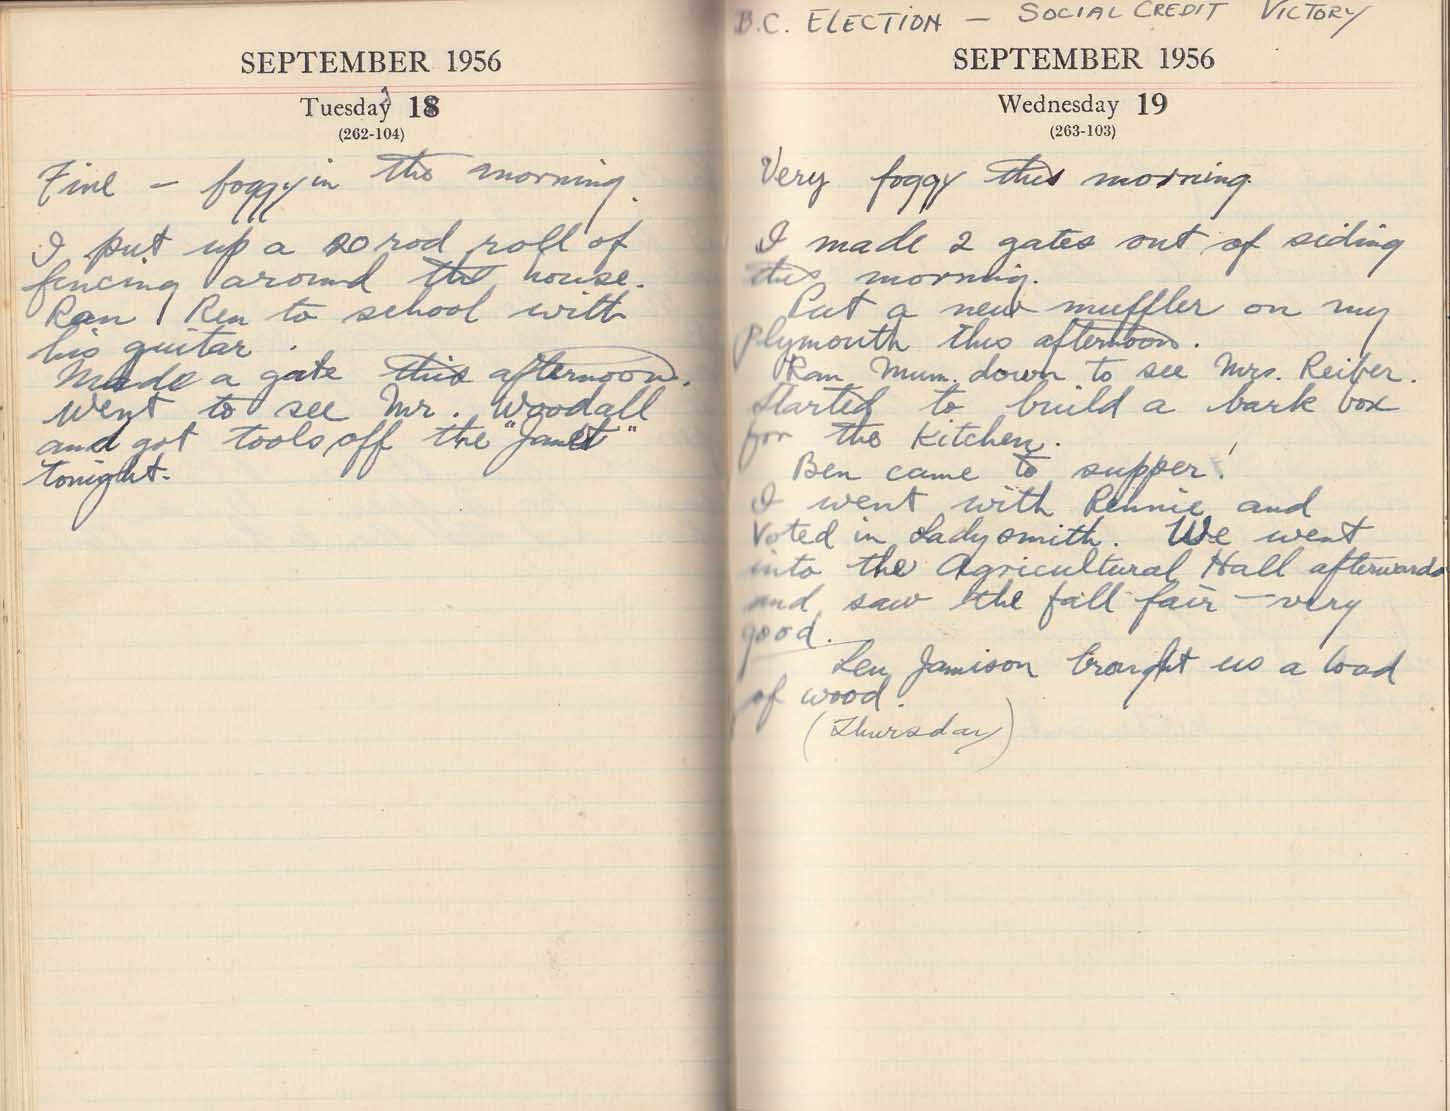 SEPTEMBER 1956
Tuesday 18
(262-104)
Fine — foggy in the morning.
I put up a 20 rod roll of
fencing around the house.
Ran Ren to school with
his guitar.
Made a gate this afternoon.
Went to see Mr. Woodall
and got tools off the "Janet"
tonight.
B.C. ELECTION — SOCIAL CREDIT VICTORY
SEPTEMBER 1956
Wednesday 19
(263-103)
Very foggy this morning.
I made 2 gates out of siding
this morning.
Put a new muffler on my
Plymouth this afternoon.
Ran Mum. down to see Mrs. Reiber.
Started to build a bark box
for the Kitchen.
Ben came to supper!
I went with Rennie and
Voted in Ladysmith. We went
into the Agricultural Hall afterwards
and saw the fall fair — very
good.
Len Jamison brought us a load
of wood.
(Thursday)